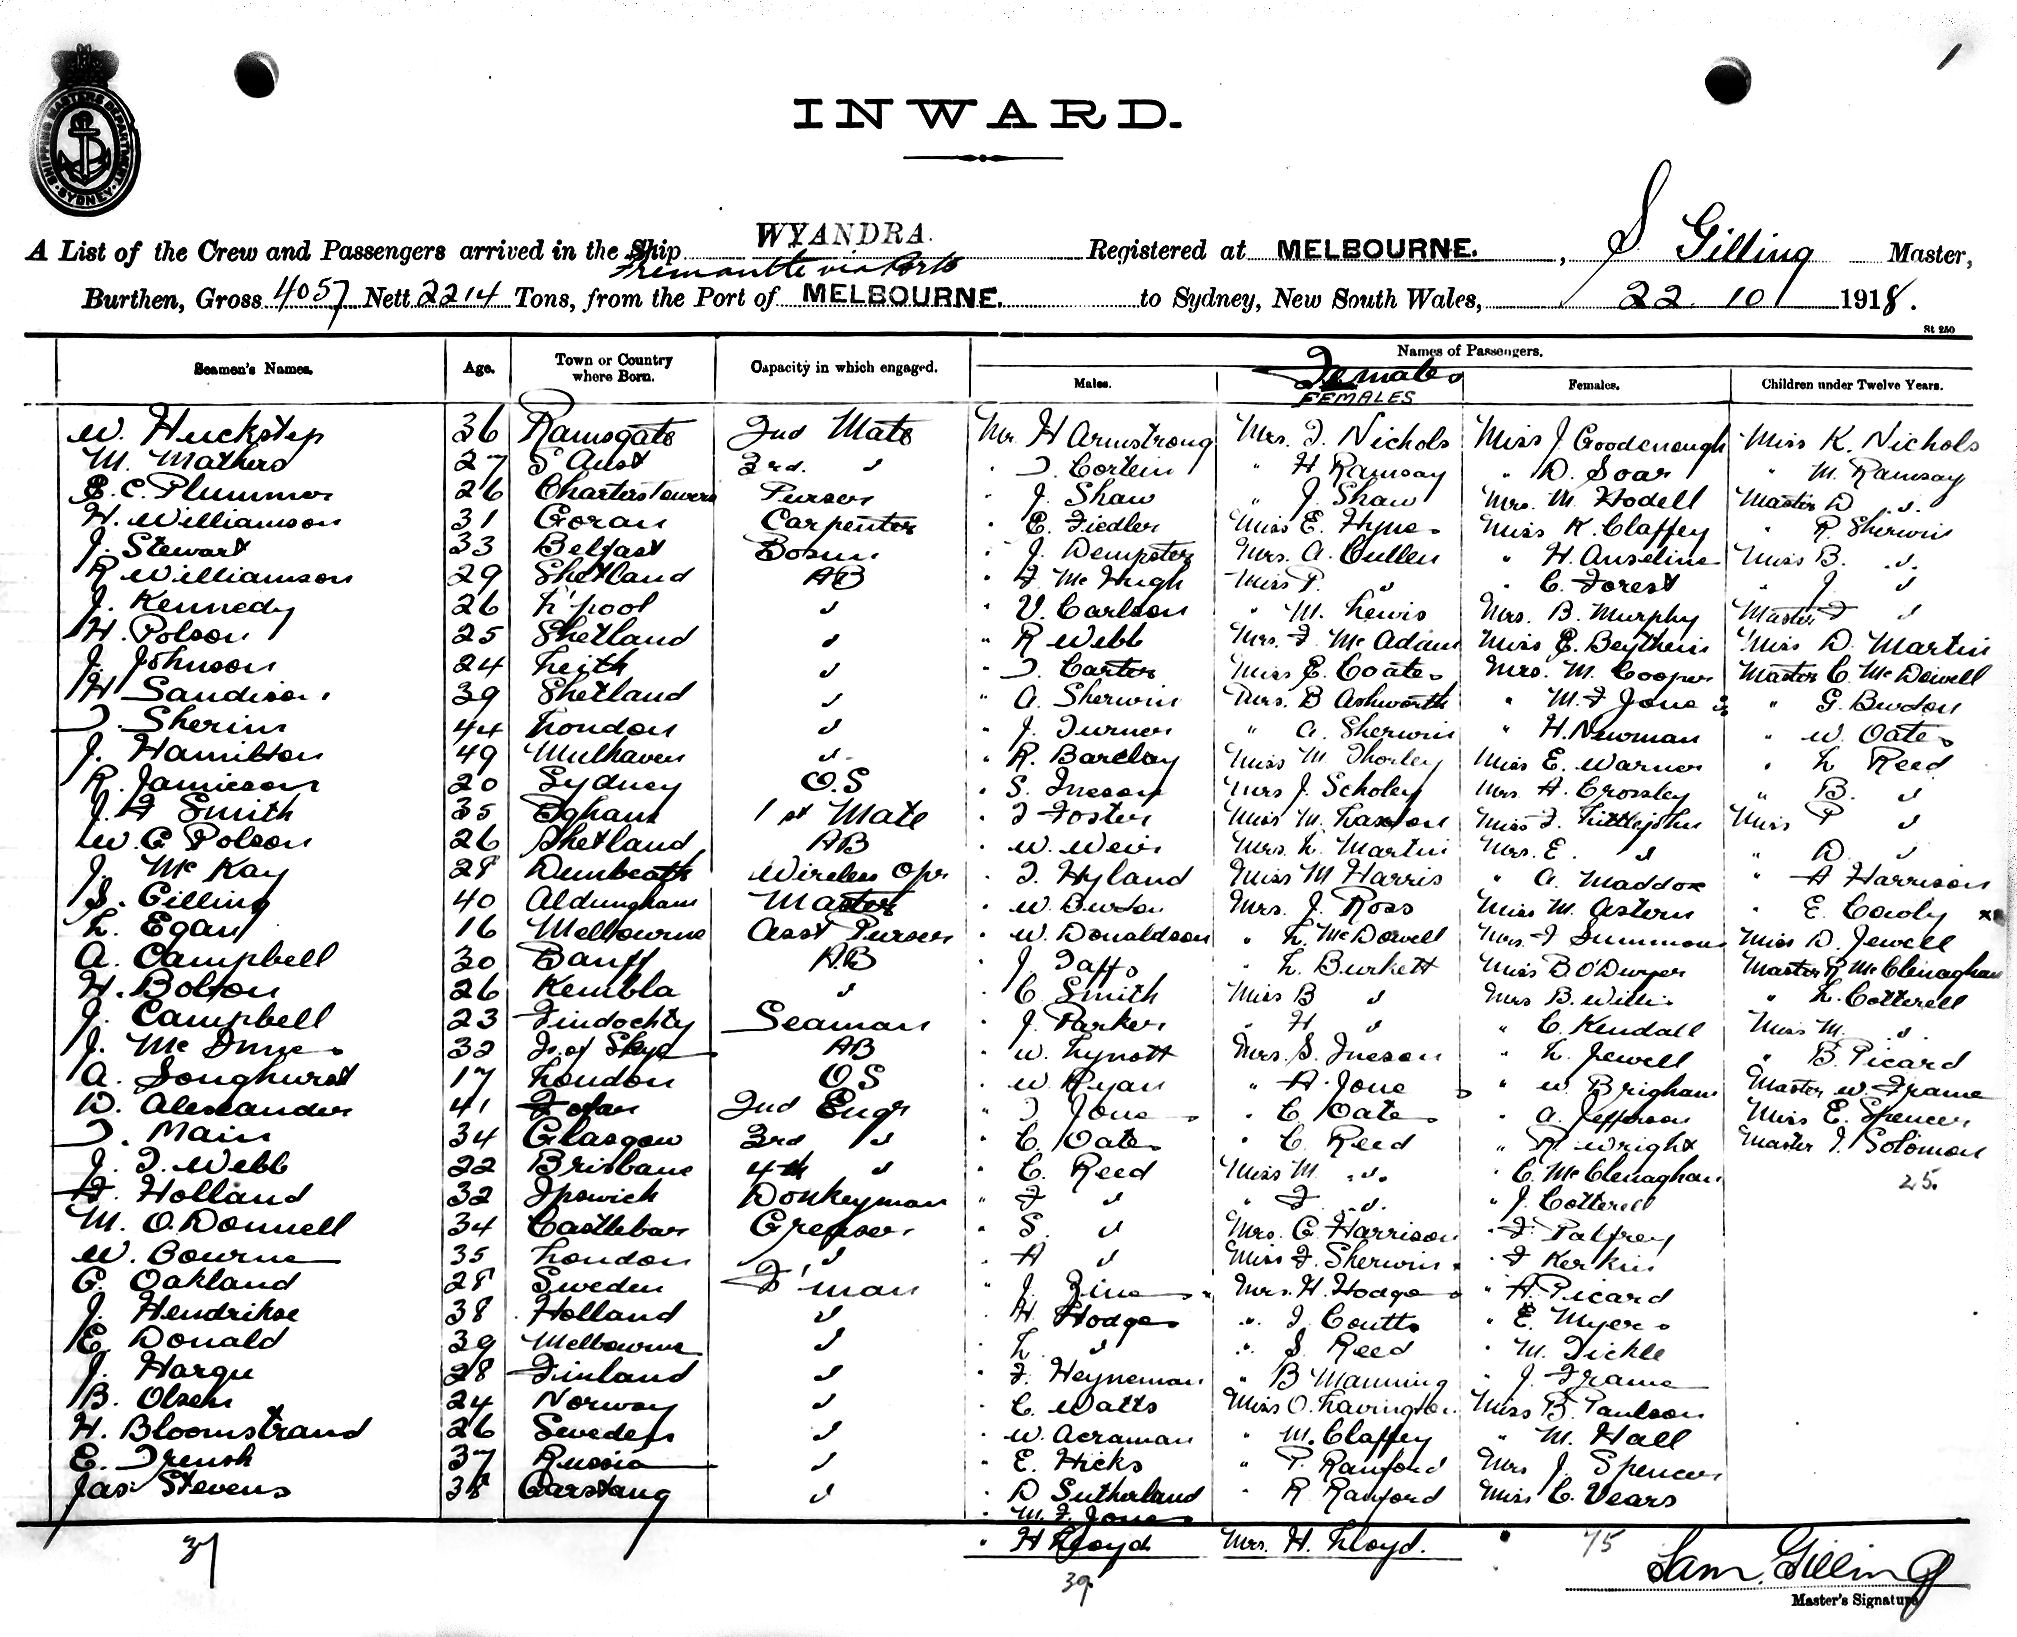 1
SHIPPING MASTERS DEPARTMENT
SYDNEY
INWARD.
A List of the Crew and Passengers arrived in the Ship WYANDRA. Registered at MELBOURNE. , S Gilling Master,
Fremantle via Ports
Burthen, Gross 4057 Nett 2214 Tons, from the Port of MELBOURNE. to Sydney, New South Wales, 22 10 1918.
St 250
Seamen's Names. Age. Town or Country where Born. Capacity in which engaged. Names of Passengers.
Males. Females FEMALES Females. Children under Twelve Years.
W. Huckstep 36 Ramsgate 2nd Mate Mr. H Armstrong Mrs. T. Nichols Miss J Goodenough Miss K. Nichols
M. Mathers 27 S Aust 3rd. " " T. Cortein " H Ramsay " D. Soar " M. Ramsay
E. C. Plummer 26 Charters Towers Purser " J. Shaw " J. Shaw Mrs. M. Hodell Master D "
H. Williamson 31 Goran Carpenter " E. Fiedler Miss E. Hynes Miss K. Claffey " R. Sherwin
J. Stewart 33 Belfast Bosun " J. Dempster Mrs. A. Cullen " H. Anseline Miss B. "
R Williamson 29 Shetland AB " F. McHugh Miss P. " " C. Forest " J "
J. Kennedy 26 L'pool " " V. Carlson " M. Lewis Mrs. B. Murphy Master F "
H. Polson 25 Shetland " " R Webb Mrs. F. McAdam Miss E. Beythein Miss D. Martin
J. Johnson 24 Leith " " T. Carter Miss E. Coates Mrs. M. Cooper Master C. McDowell
H Sandison 39 Shetland " " A. Sherwin Mrs. B Ashworth " M. F Jones " G. Burdon
T. Sherin 44 London " " J. Turner " A. Sherwin " H. Newman " W. Oates
J. Hamilton 49 Mulhaven " " R. Barclay Miss M. Thorley Miss E. Warner " L Reed
R. Jamieson 20 Sydney O.S " S. Ineson Mrs J. Scholey Mrs. A. Crossley " B. "
J. F Smith 35 Egham 1st Mate " T Foster Miss M. Laxton Miss F. Littlejohn Miss P "
W. G Polson 26 Shetland AB " W. Weir Mrs. L. Martin Mrs. E. " " D. "
J. McKay 28 Dunbeath Wireless Opr " T. Hyland Miss M Harris " A. Maddox " A Harrison
S. Gilling 40 Aldingham Master " W. Burdon Mrs. J. Ross Miss M. Astern " E. Cawly
L. Egan 16 Melbourne Asst Purser " W. Donaldson " L. McDowell Mrs. F Simmons Miss D. Jewell
A. Campbell 30 Banff AB " J Taffs " L. Burkett Miss B O'Dwyer Master R McClenaghan
H. Bolson 26 Kembla " " C Smith Miss B " Mrs B. Willis " L. Cotterell
J. Campbell 23 Findochty Seaman " J. Parker " H " " C. Kendall Miss M. "
J. McInnes 32 Is. of Skye AB " W. Lynott Mrs. S. Ineson " L. Jewell " B. Picard
A. Songhurst 17 London OS " W. Ryan " A. Jones " W Brigham Master W. Frame
D. Alexander 41 2nd Engr " T Jones " C. Oates " A. Jefferson Miss E. Spencer
T. Main 34 Glasgow 3rd " " C. Oates " C. Reed " R. Wright Master I. Solomon
J. T. Webb 22 Brisbane 4th " " C. Reed Miss M. " " C. McClenaghan 25.
F. Holland 32 Ipswich Donkeyman " F " " F. " " J. Cotterell
M. O.Donnell 34 Castlebar Greaser " S. " Mrs. G. Harrison " F. Palfrey
W. Bourne 35 London " " A " Miss F. Sherwin " F Kerkin
G. Oakland 28 Sweden F'man " J. Zines Mrs. H. Hodges " A. Picard
J. Hendrikse 38 Holland " " H Hodges " T. Coutts " E. Myers
E Donald 39 Melbourne " " L. " " S. Reed " M. Tickle
J. Hargu 28 Finland " " F. Heyneman " B Manning " J. Frame
B. Olsen 24 Norway " " C. Watts Miss O. Lavington Miss B. Paulson
H. Bloomstrand 26 Sweden " " W. Acraman " M. Claffey " M. Hall
E. Trensh 37 Russia " " E. Hicks " P. Ranford Mrs J. Spencer
Jas Stevens 38 Garstang " " D Sutherland " R Ranford Miss C. Vears
" M. F. Jones
37 " H Lloyd Mrs. H. Lloyd. 75
39
Sam. Gilling
Master's Signature